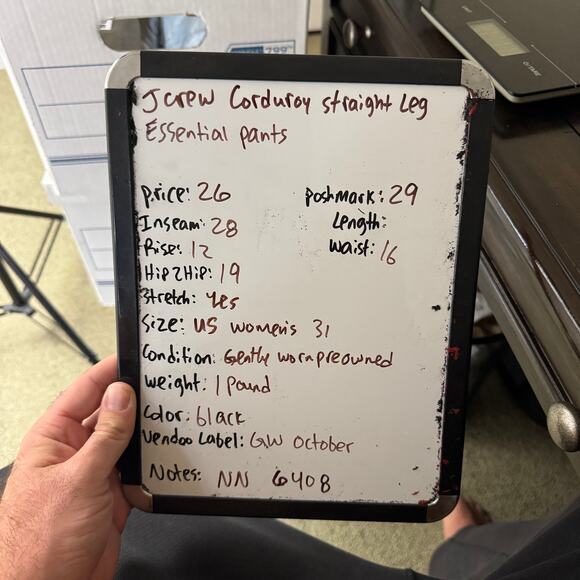 Jcrew Corduroy straight Leg
Essential pants
price: 26
poshmark: 29
Inseam: 28
Length:
Rise: 12
Waist: 16
Hip 2 Hip: 19
Stretch: Yes
Size: US women's 31
Condition: Gently worn preowned
Weight: 1 Pound
Color: black
Vendoo Label: GW October
Notes: NN 6408